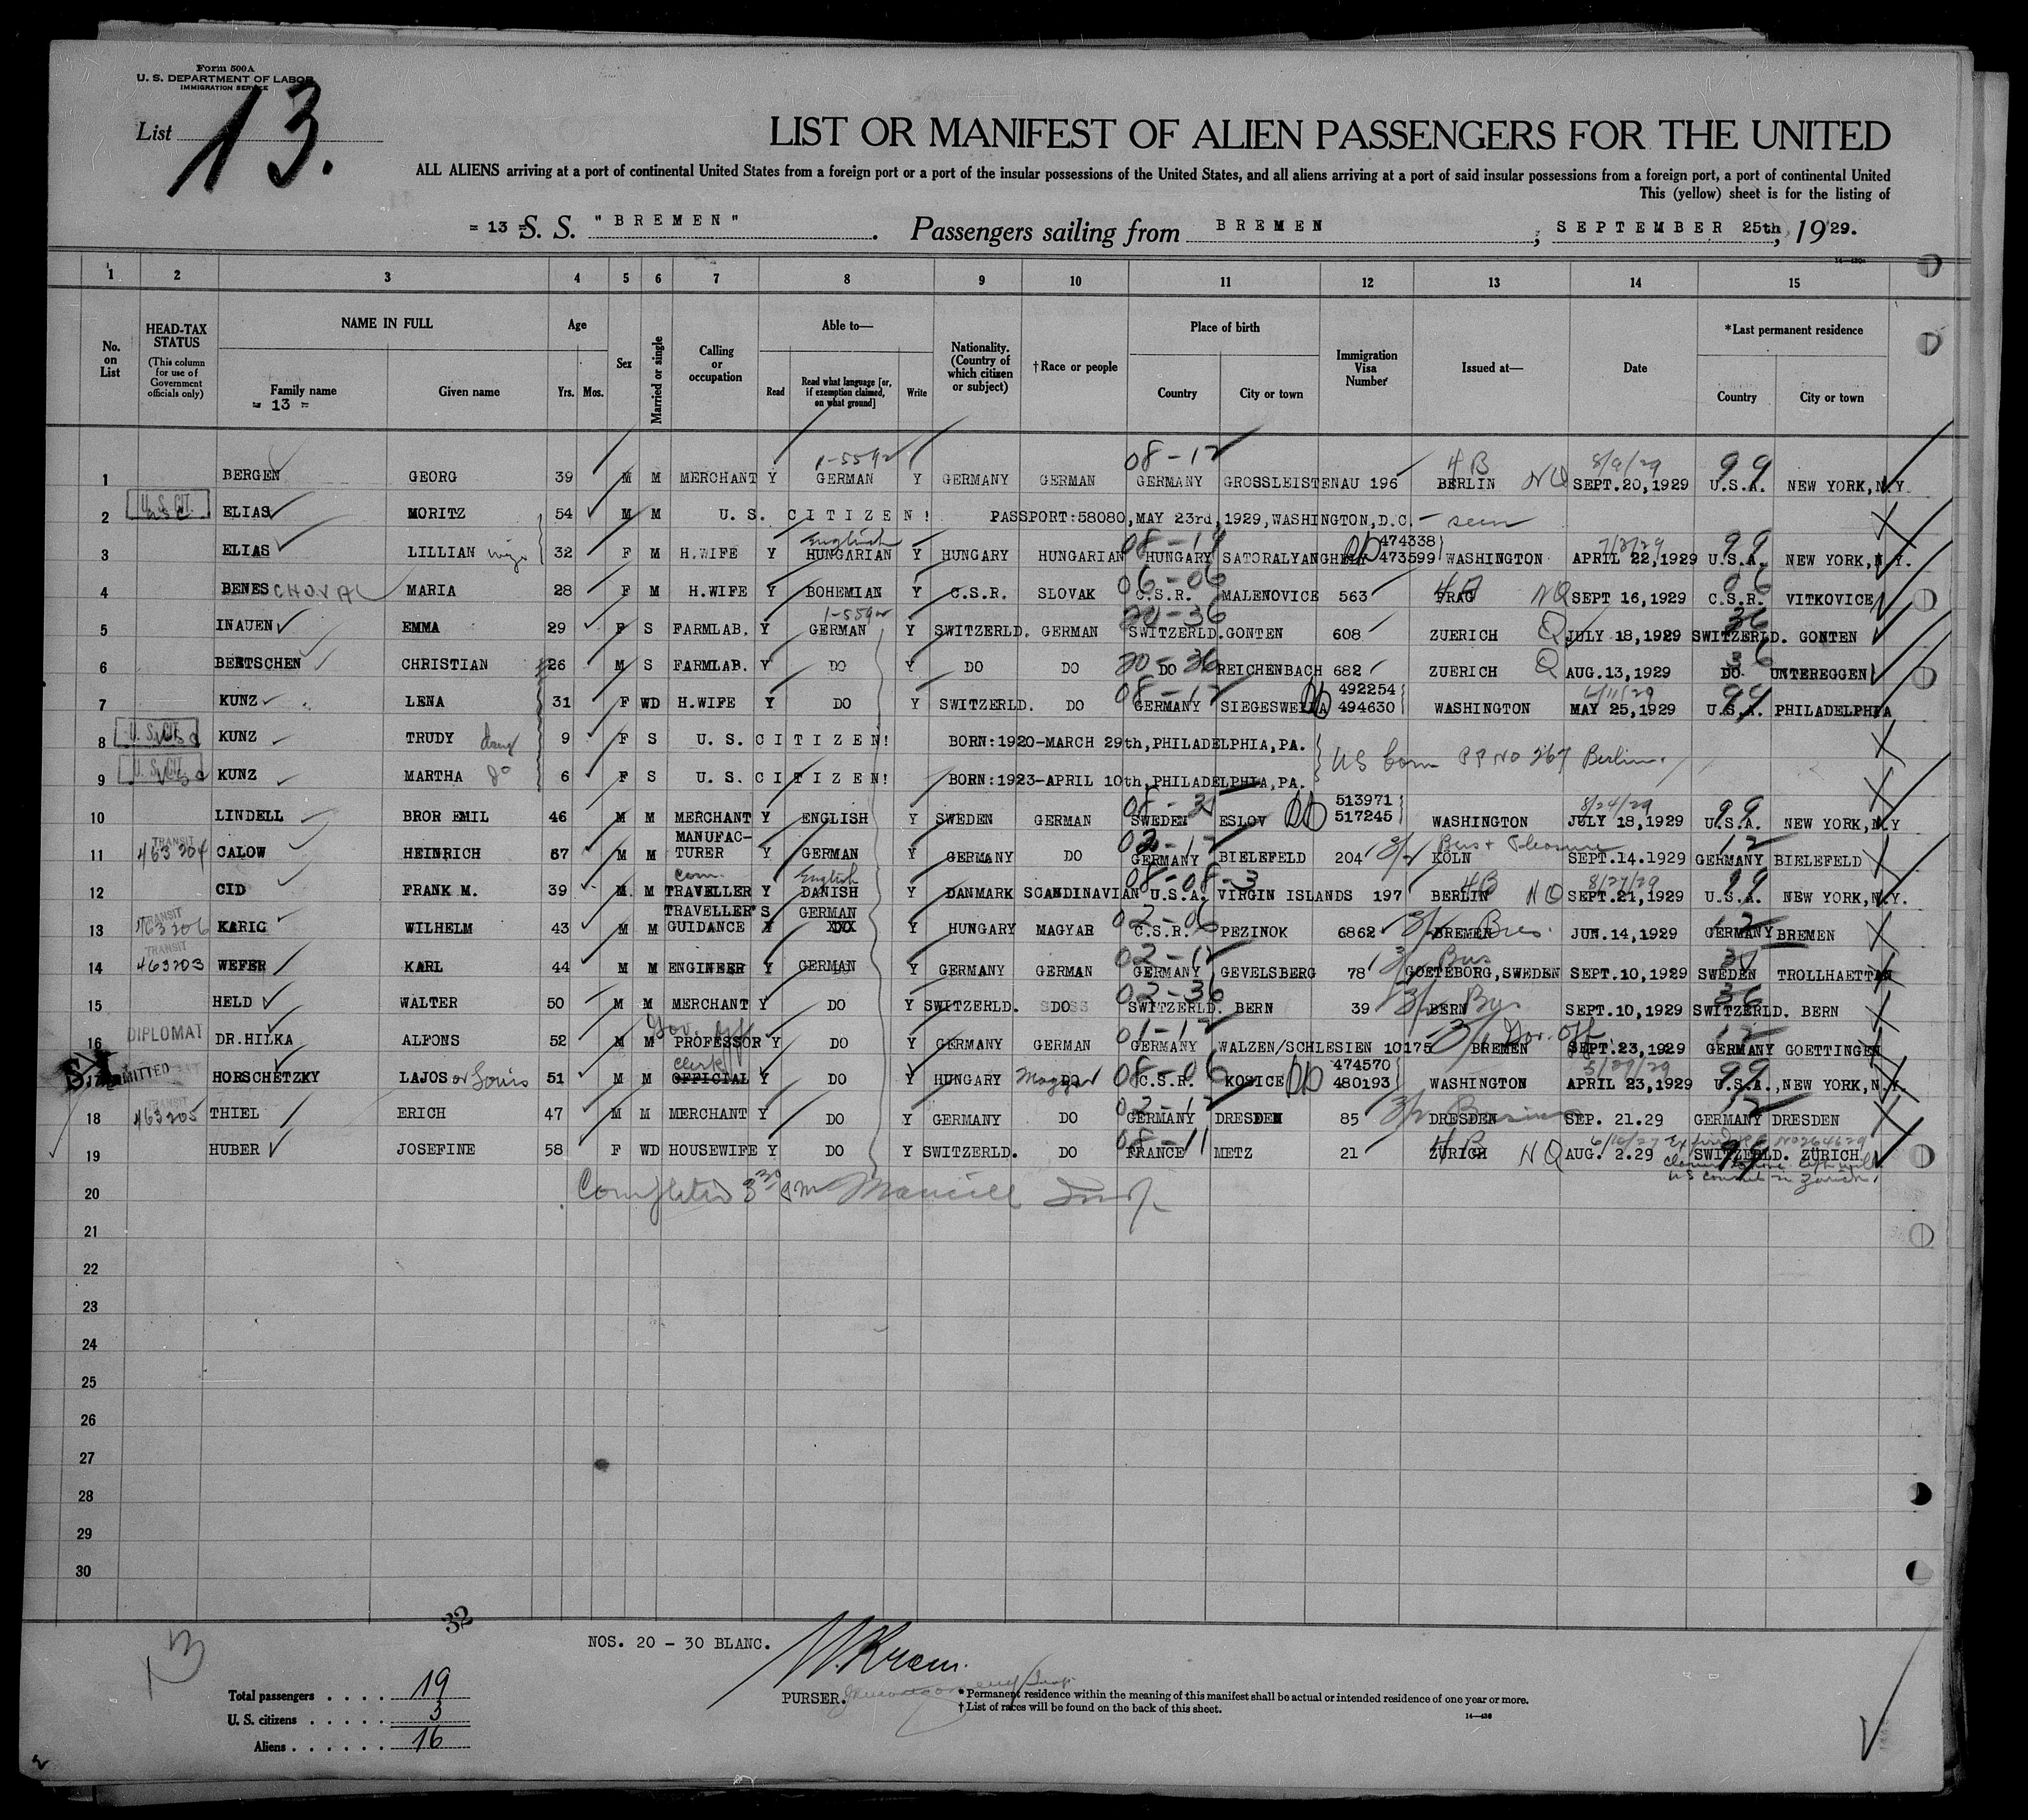 Form 500A
U. S. DEPARTMENT OF LABOR
IMMIGRATION SERVICE
List 13.
LIST OR MANIFEST OF ALIEN PASSENGERS FOR THE UNITED
ALL ALIENS arriving at a port of continental United States from a foreign port or a port of the insular possessions of the United States, and all aliens arriving at a port of said insular possessions from a foreign port, a port of continental United
This (yellow) sheet is for the listing of
= 13 = S. S. "BREMEN". Passengers sailing from BREMEN; SEPTEMBER 25th, 19'29.
14—430a
1 2 3 4 5 6 7 8 9 10 11 12 13 14 15
No. on List
HEAD-TAX STATUS
(This column for use of Government officials only)
NAME IN FULL
Family name
= 13 =
Given name
Age
Yrs. Mos.
Sex
Married or single
Calling or occupation
Able to—
Read
Read what language [or, if exemption claimed, on what ground]
Write
Nationality. (Country of which citizen or subject)
†Race or people
Place of birth
Country
City or town
Immigration Visa Number
Issued at—
Date
*Last permanent residence
Country
City or town
1-5592 08-12 4B 8/9/29 99
1 BERGEN GEORG 39 M M MERCHANT Y GERMAN Y GERMANY GERMAN GERMANY GROSSLEISTENAU 196 BERLIN NQ SEPT.20,1929 U.S.A. NEW YORK,N.Y.
2 U. S. CIT. ELIAS MORITZ 54 M M U.S. CITIZEN! PASSPORT:58080,MAY 23rd,1929,WASHINGTON,D.C. - seen
English 08-19 474338 7/3/29 99
3 ELIAS LILLIAN wife 32 F M H.WIFE Y HUNGARIAN Y HUNGARY HUNGARIAN HUNGARY SATORALYANGHELY 473599 WASHINGTON APRIL 22,1929 U.S.A. NEW YORK,N.Y.
06-06 4B 06
4 BENES CHOVA MARIA 28 F M H.WIFE Y BOHEMIAN Y C.S.R. SLOVAK C.S.R. MALENOVICE 563 PRAG NQ SEPT 16,1929 C.S.R. VITKOVICE
1-5592 20-36 36
5 INAUEN EMMA 29 F S FARMLAB. Y GERMAN Y SWITZERLD. GERMAN SWITZERLD. GONTEN 608 ZUERICH Q JULY 18,1929 SWITZERLD. GONTEN
20-36 36
6 BERTSCHEN CHRISTIAN 26 M S FARMLAB. Y DO Y DO DO DO REICHENBACH 682 ZUERICH Q AUG.13,1929 DO. UNTEREGGEN
08-12 492254 6/11/29 99
7 KUNZ LENA 31 F WD H.WIFE Y DO Y SWITZERLD. DO GERMANY SIEGESWEILA 494630 WASHINGTON MAY 25,1929 U.S.A. PHILADELPHIA
8 U. S. CIT. KUNZ TRUDY daug 9 F S U.S. CITIZEN! BORN:1920-MARCH 29th,PHILADELPHIA,PA.
US born PP NO 267 Berlin.
9 U. S. CIT. KUNZ MARTHA do 6 F S U.S. CITIZEN! BORN:1923-APRIL 10th,PHILADELPHIA,PA.
513971 8/24/29 99
10 LINDELL BROR EMIL 46 M M MERCHANT Y ENGLISH Y SWEDEN GERMAN SWEDEN ESLOV 517245 WASHINGTON JULY 18,1929 U.S.A. NEW YORK,N.Y
TRANSIT 463204 MANUFAC- 02-12 3/2 Bus + Pleasure 12
11 CALOW HEINRICH 67 M M TURER Y GERMAN Y GERMANY DO GERMANY BIELEFELD 204 KÖLN SEPT.14.1929 GERMANY BIELEFELD
com. English 08-08-3 4B 8/27/29 99
12 CID FRANK M. 39 M M TRAVELLER Y DANISH Y DANMARK SCANDINAVIAN U.S.A. VIRGIN ISLANDS 197 BERLIN NQ SEPT.21,1929 U.S.A. NEW YORK,N.Y.
TRANSIT 463206 TRAVELLER'S GERMAN 02-06 12
13 KARIG WILHELM 43 M M GUIDANCE Y XXX Y HUNGARY MAGYAR C.S.R. PEZINOK 6862 3/2 BREMEN Bus. JUN.14,1929 GERMANY BREMEN
TRANSIT 463203 02-12 3/2 Bus
14 WEFER KARL 44 M M ENGINEER Y GERMAN Y GERMANY GERMAN GERMANY GEVELSBERG 78 GOETEBORG,SWEDEN SEPT.10,1929 SWEDEN TROLLHAETTAN
02-36 36
15 HELD WALTER 50 M M MERCHANT Y DO Y SWITZERLD. DO SWITZERLD. BERN 39 3/2 BERN Bus SEPT.10,1929 SWITZERLD. BERN
DIPLOMAT Gov. Off 01-12 3/1 Gov. Off. 12
16 DR.HILKA ALFONS 52 M M PROFESSOR Y DO Y GERMANY GERMAN GERMANY WALZEN/SCHLESIEN 10175 BREMEN SEPT.23,1929 GERMANY GOETTINGEN
SI ADMITTED Clerk 08-06 474570 5/29/29 99
17 HORSCHETZKY LAJOS or Louis 51 M M OFFICIAL Y DO Y HUNGARY Magyar DO C.S.R. KOSICE 480193 WASHINGTON APRIL 23,1929 U.S.A., NEW YORK,N.Y.
TRANSIT 463205 02-12 12
18 THIEL ERICH 47 M M MERCHANT Y DO Y GERMANY DO GERMANY DRESDEN 85 3/2 DRESDEN Business SEP. 21.29 GERMANY DRESDEN
08-11 4B
19 HUBER JOSEFINE 58 F WD HOUSEWIFE Y DO Y SWITZERLD. DO FRANCE METZ 21 ZÜRICH NQ AUG. 2.29 SWITZERLD. ZÜRICH
US consul in Zurich
20 Completed 3 30 pm Insp.
21
22
23
24
25
26
27
28
29
30
32
NOS. 20 - 30 BLANC.
13
PURSER.
Total passengers . . . . 19
U. S. citizens . . . . . 3
Aliens . . . . . . 16
* Permanent residence within the meaning of this manifest shall be actual or intended residence of one year or more.
† List of races will be found on the back of this sheet.
14—430